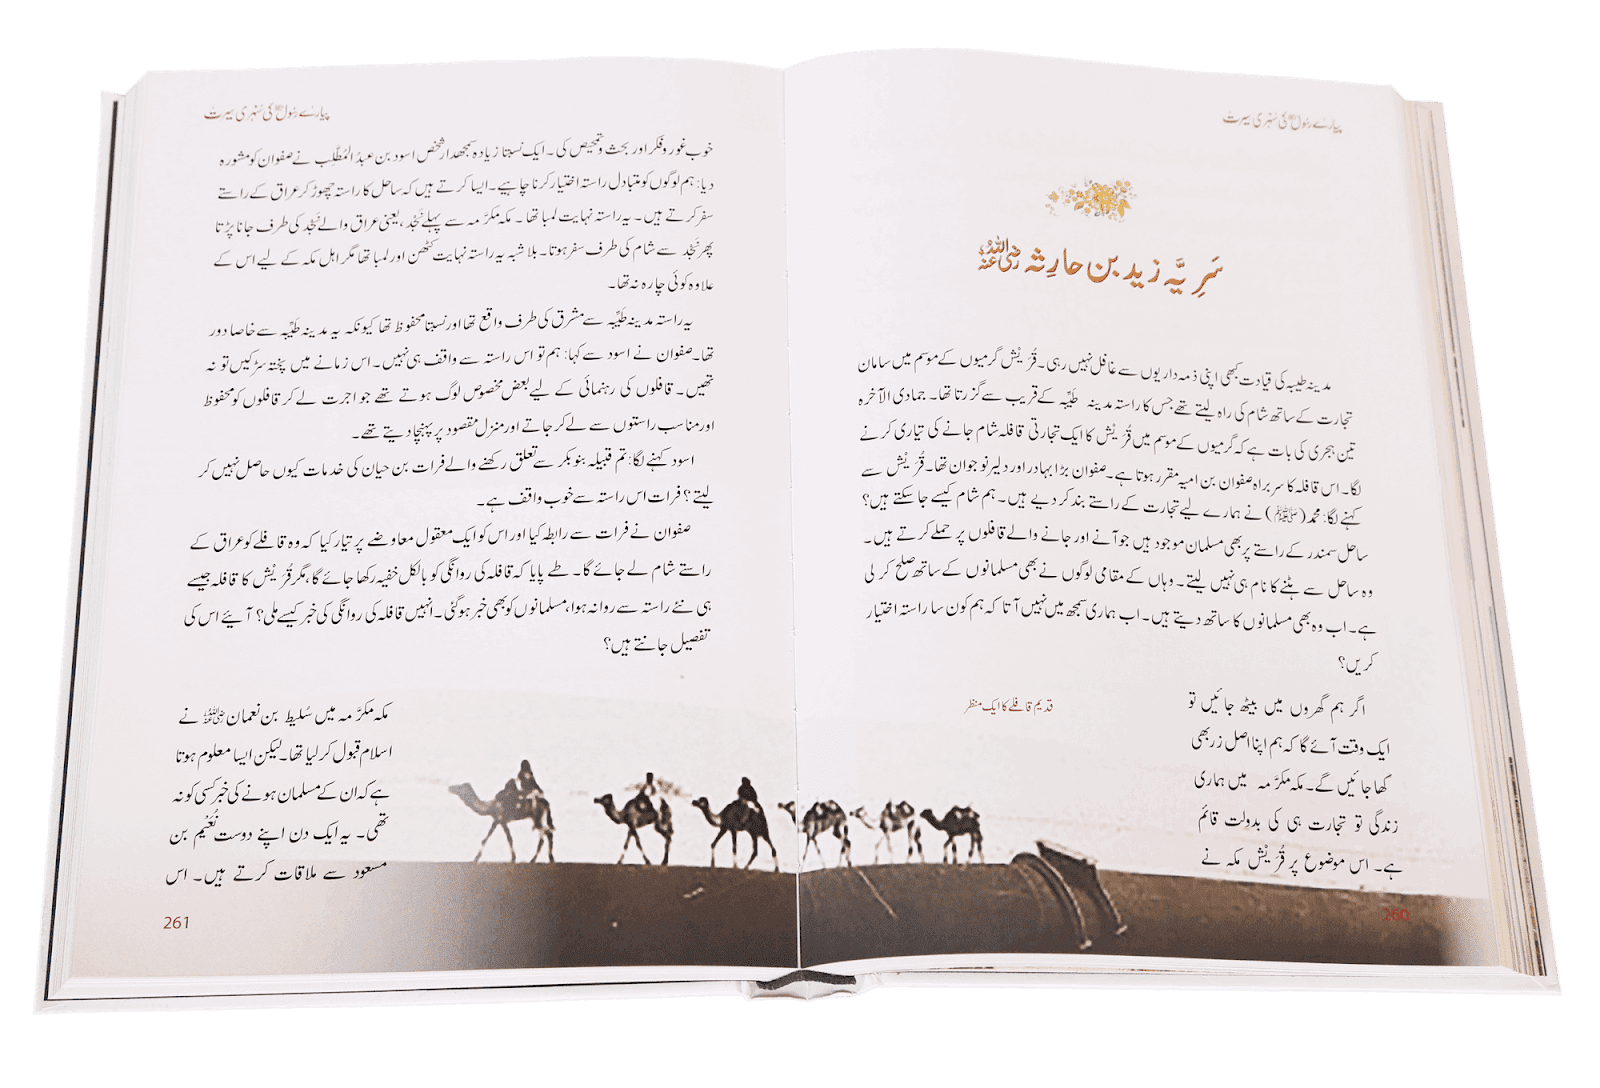 پیارے رسول ﷺ کی سنہری سیرت
سَرِیَّہ زید بن حارِثہ رضی اللہ عنہ
مدینہ طیبہ کی قیادت کبھی اپنی ذمہ داریوں سے غافل نہیں رہی۔ قُرَیْش گرمیوں کے موسم میں سامان
تجارت کے ساتھ شام کی راہ لیتے تھے جس کا راستہ مدینہ طَیِّبہ کے قریب سے گزرتا تھا۔ جمادی الآخرہ
تین ہجری کی بات ہے کہ گرمیوں کے موسم میں قُرَیْش کا ایک تجارتی قافلہ شام جانے کی تیاری کرنے
لگا۔ اس قافلہ کا سربراہ صفوان بن امیہ مقرر ہوتا ہے۔ صفوان بڑا بہادر اور دلیر نوجوان تھا۔ قُرَیْش سے
کہنے لگا: محمد (ﷺ) نے ہمارے لیے تجارت کے راستے بند کر دیے ہیں۔ ہم شام کیسے جا سکتے ہیں؟
ساحل سمندر کے راستے پر بھی مسلمان موجود ہیں جو آنے اور جانے والے قافلوں پر حملے کرتے ہیں۔
وہ ساحل سے ہٹنے کا نام ہی نہیں لیتے۔ وہاں کے مقامی لوگوں نے بھی مسلمانوں کے ساتھ صلح کر لی
ہے۔ اب وہ بھی مسلمانوں کا ساتھ دیتے ہیں۔ اب ہماری سمجھ میں نہیں آتا کہ ہم کون سا راستہ اختیار
کریں؟
اگر ہم گھروں میں بیٹھ جائیں تو
ایک وقت آئے گا کہ ہم اپنا اصل زر بھی
کھا جائیں گے۔ مکہ مکرَّمہ میں ہماری
زندگی تو تجارت ہی کی بدولت قائم
ہے۔ اس موضوع پر قُرَیْش مکہ نے
قدیم قافلے کا ایک منظر
260
پیارے رسول ﷺ کی سنہری سیرت
خوب غور و فکر اور بحث و تمحیص کی۔ ایک نسبتا زیادہ سمجھدار شخص اسود بن عبدُ المُطَّلِب نے صفوان کو مشورہ
دیا: ہم لوگوں کو متبادل راستہ اختیار کرنا چاہیے۔ ایسا کرتے ہیں کہ ساحل کا راستہ چھوڑ کر عراق کے راستے
سفر کرتے ہیں۔ یہ راستہ نہایت لمبا تھا۔ مکہ مکرَّمہ سے پہلے نَجْد، یعنی عراق والے نَجْد کی طرف جانا پڑتا
پھر نَجْد سے شام کی طرف سفر ہوتا۔ بلا شبہ یہ راستہ نہایت کٹھن اور لمبا تھا مگر اہل مکہ کے لیے اس کے
علاوہ کوئی چارہ نہ تھا۔
یہ راستہ مدینہ طَیِّبہ سے مشرق کی طرف واقع تھا اور نسبتا محفوظ تھا کیونکہ یہ مدینہ طَیِّبہ سے خاصا دور
تھا۔ صفوان نے اسود سے کہا: ہم تو اس راستہ سے واقف ہی نہیں۔ اس زمانے میں پختہ سڑکیں تو نہ
تھیں۔ قافلوں کی رہنمائی کے لیے بعض مخصوص لوگ ہوتے تھے جو اجرت لے کر قافلوں کو محفوظ
اور مناسب راستوں سے لے کر جاتے اور منزل مقصود پر پہنچا دیتے تھے۔
اسود کہنے لگا: تم قبیلہ بنو بکر سے تعلق رکھنے والے فرات بن حیان کی خدمات کیوں حاصل نہیں کر
لیتے؟ فرات اس راستہ سے خوب واقف ہے۔
صفوان نے فرات سے رابطہ کیا اور اس کو ایک معقول معاوضے پر تیار کیا کہ وہ قافلے کو عراق کے
راستے شام لے جائے گا۔ طے پایا کہ قافلہ کی روانگی کو بالکل خفیہ رکھا جائے گا، مگر قُرَیْش کا قافلہ جیسے
ہی نئے راستہ سے روانہ ہوا، مسلمانوں کو بھی خبر ہو گئی۔ انہیں قافلہ کی روانگی کی خبر کیسے ملی؟ آئیے اس کی
تفصیل جانتے ہیں؟
مکہ مکرَّمہ میں سُلیط بن نعمان رضی اللہ عنہ نے
اسلام قبول کر لیا تھا۔ لیکن ایسا معلوم ہوتا
ہے کہ ان کے مسلمان ہونے کی خبر کسی کو نہ
تھی۔ یہ ایک دن اپنے دوست نُعَیْم بن
مسعود سے ملاقات کرتے ہیں۔ اس
261